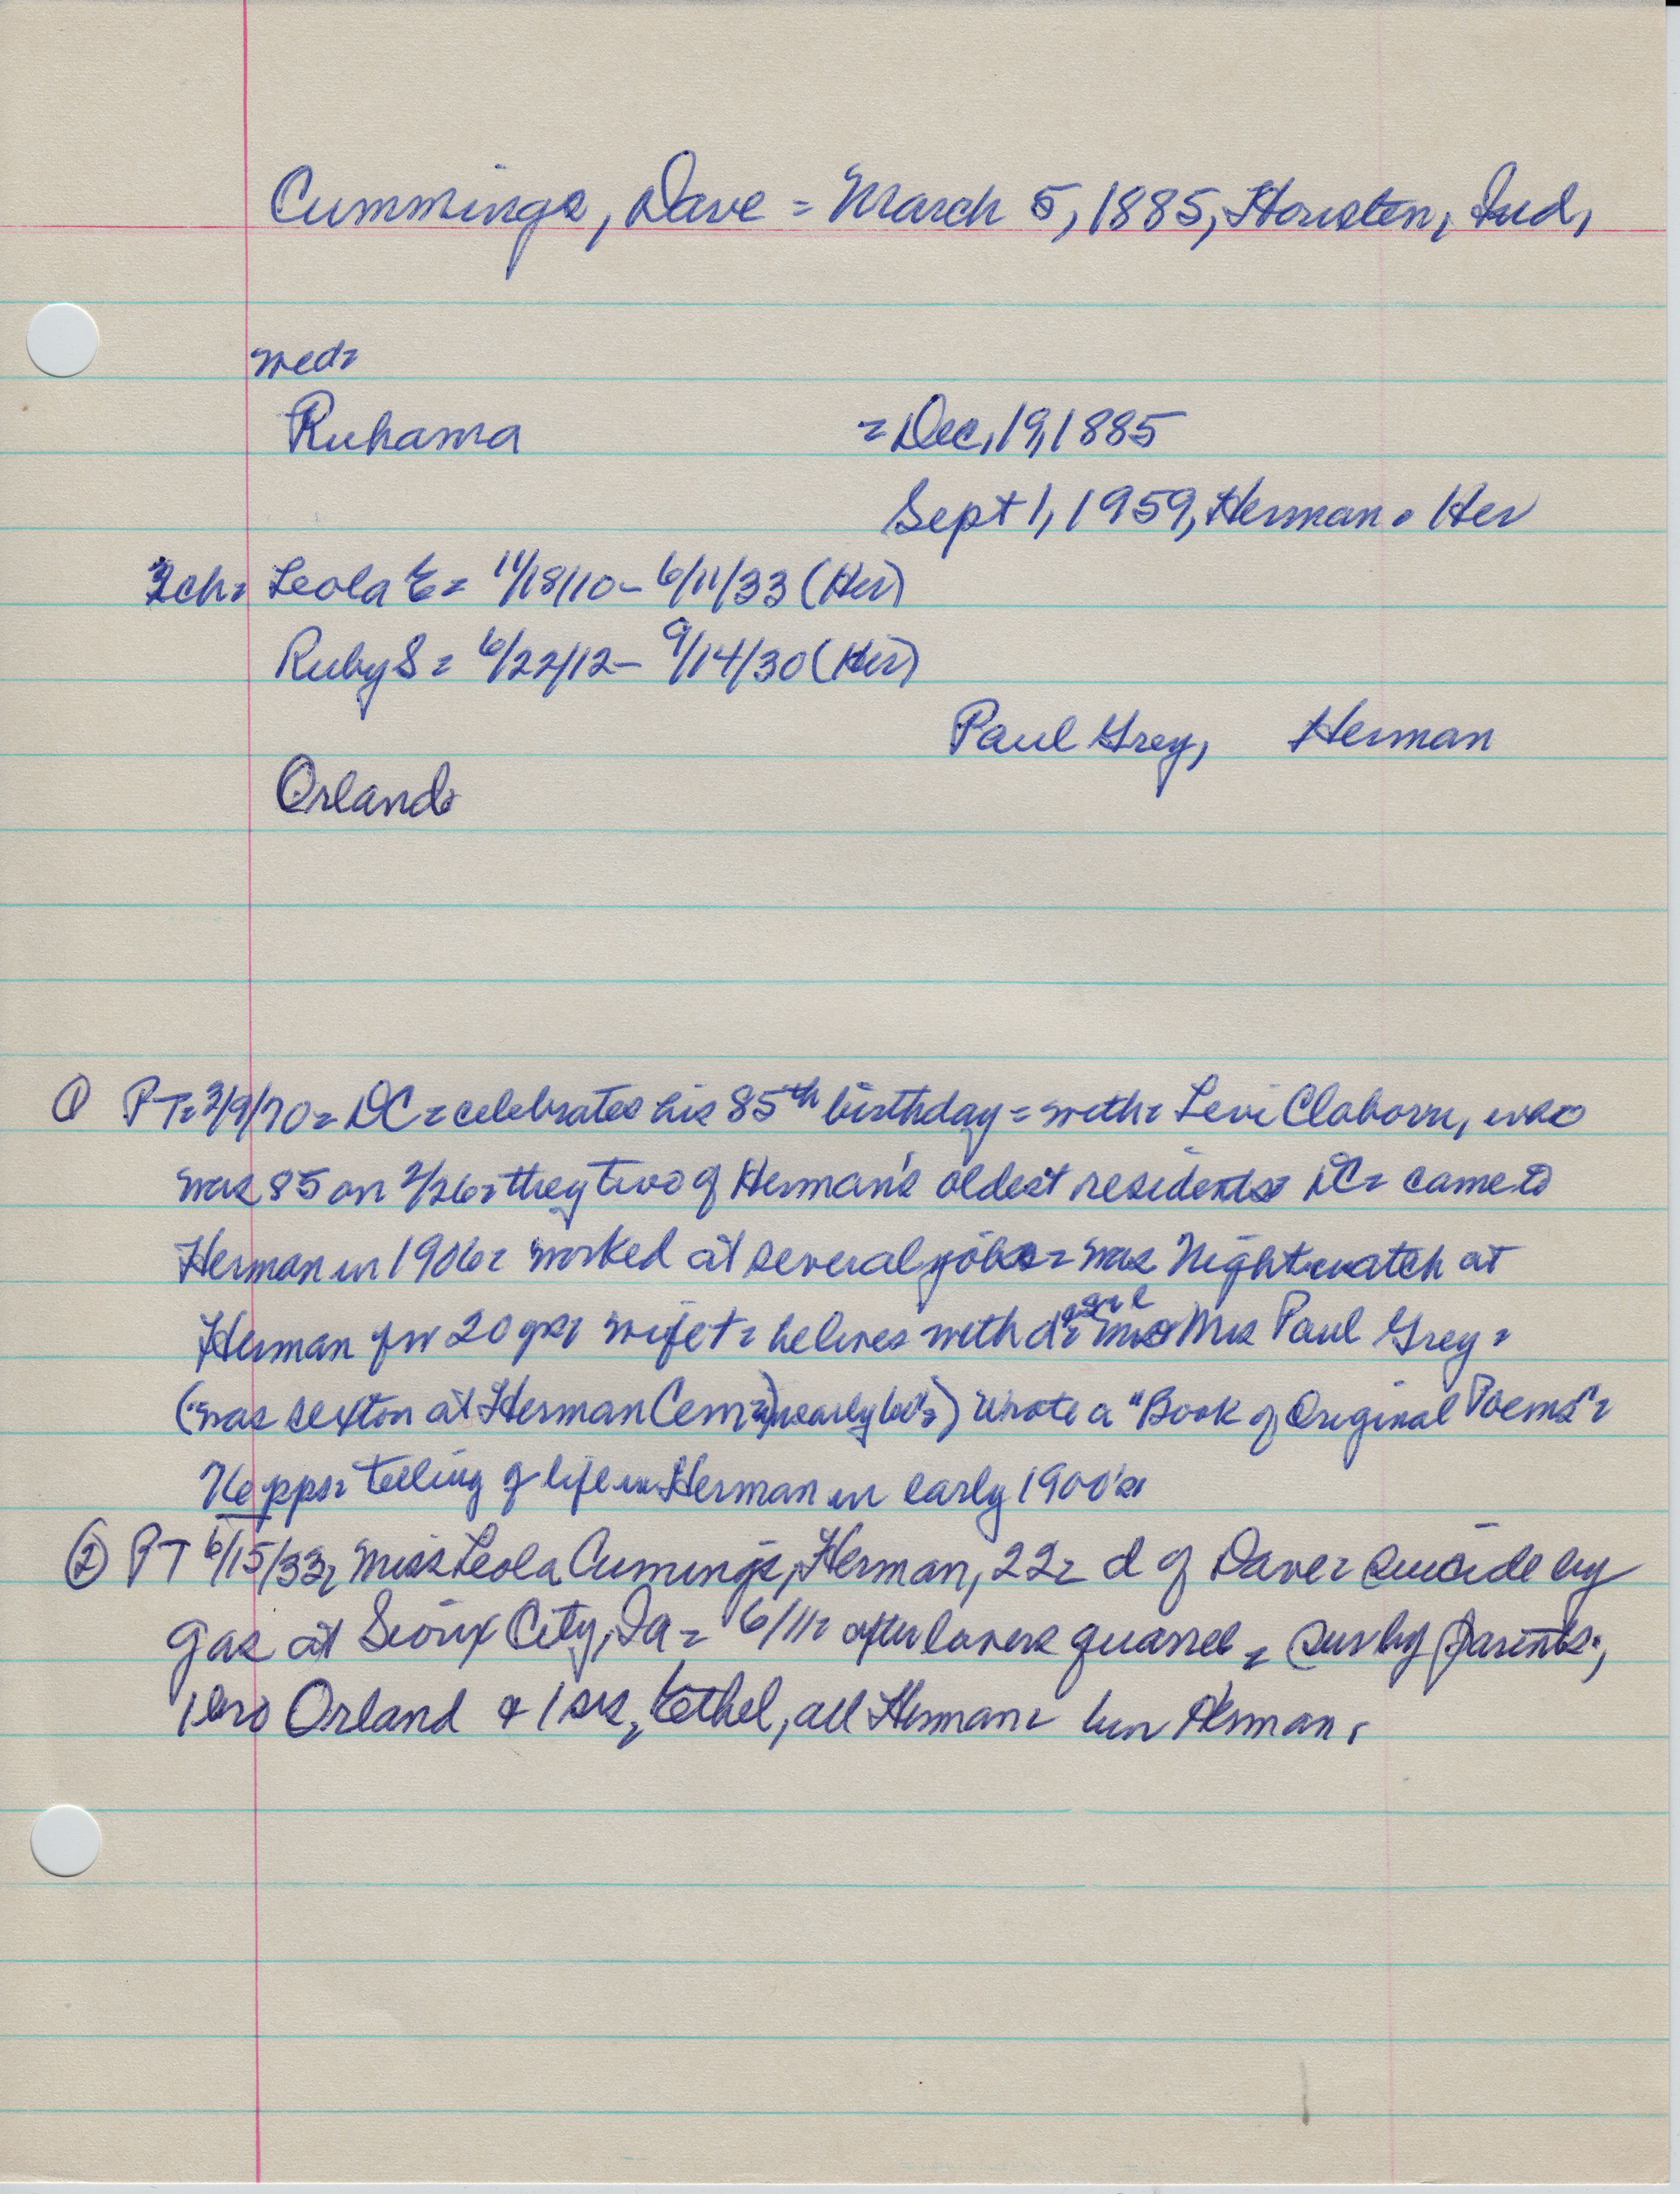 Cummings, Dave = March 5, 1885, Houston, Ind,
wed=
Ruhama = Dec, 19, 1885
Sept 1, 1959, Herman. Her
ch= Leola E= 11/18/10- 6/11/33 (Her)
Ruby S= 6/22/12- 9/14/30 (Her)
Paul Grey, Herman
Orland
① PT= 3/9/70= DC= celebrates his 85th birthday = with= Levi Claborn, who
was 85 on 2/26= they two of Herman's oldest residents DC= came to
Herman in 1906= worked at several jobs= was Nightwatch at
Herman for 20 yrs= wife t= he lives with d= Mrs Paul Grey=
(was sexton at Herman Cem= early 60's) wrote a "Book of Original Poems"=
76 pps= telling of life in Herman in early 1900's
② PT 6/15/33= Miss Leola Cummings, Herman, 22= d of Dave= suicide by
gas at Sioux City, Ia = 6/11= after lovers quarrel = sur by parents,
1 bro Orland & 1 sis, Ethel, all Herman= bur Herman.